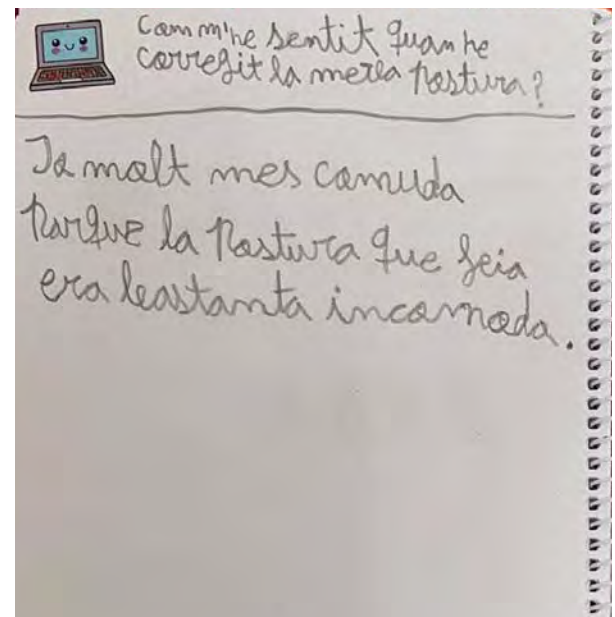 Com m'he sentit quan he
corregit la meva postura?
Jo molt mes comuda
Parque la Postura que feia
era bastanta incomoda.